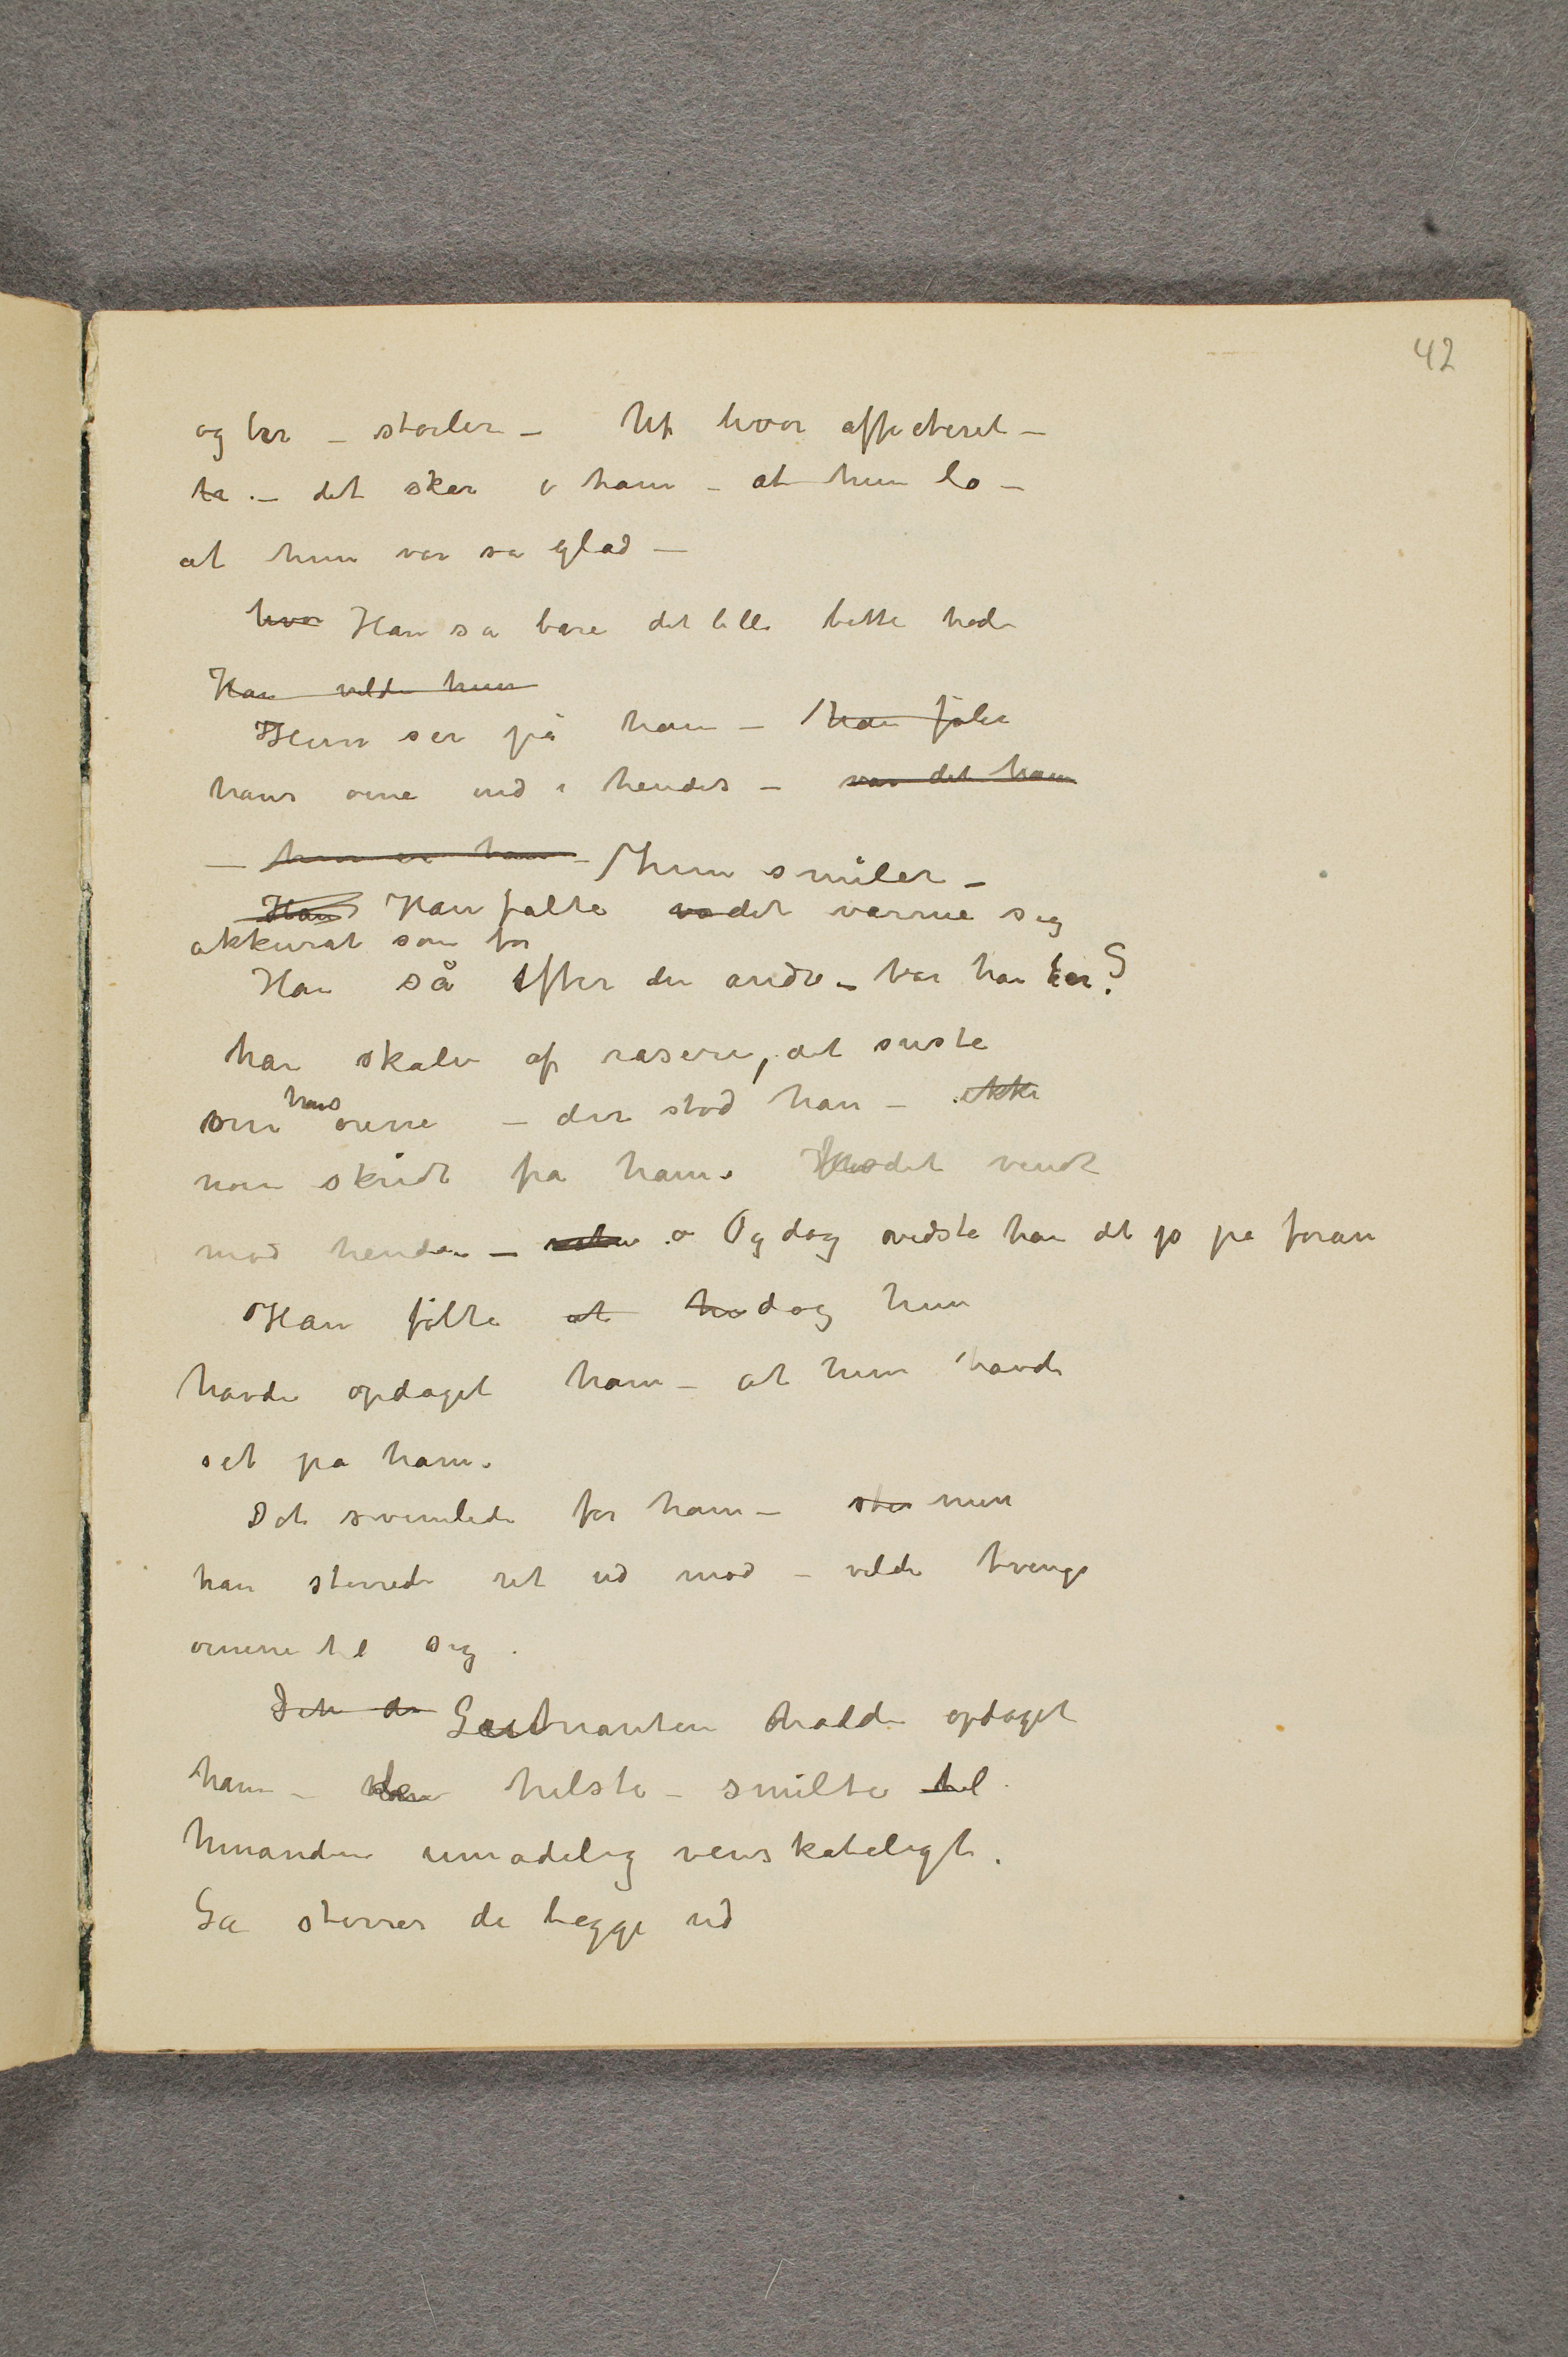 42
og ler – stråler – Uf hvor affecteret –
ha – det skar i ham – at hun lo –
at hun var så glad –
hvor Han så bare det lille hode
Han vilde hun
Hun ser på ham – han føler
hans øine ind i hendes – var det ham
– hun er ham – hun smiler –
Han Han følte det varme sig
akkurat som før
Han så efter den andre – Var han her?
han skalv af raseri, det suste
om hans ørene – der stod han – ikke
noen skridt fra ham. Hodet vendt
mod hende – Og dog vidste han det jo på foran
Han følte at hu dog hun
havde opdaget ham – at hun havde
set på ham.
Det svimlede for ham – men
han stirred ret ud mod – vilde tvinge
øinene til sig.
Den Leutnanten hadde opdaget
ham – de hilste – smilte til
hinanden umådelig venskabeligt.
Så stirrer de begge ud